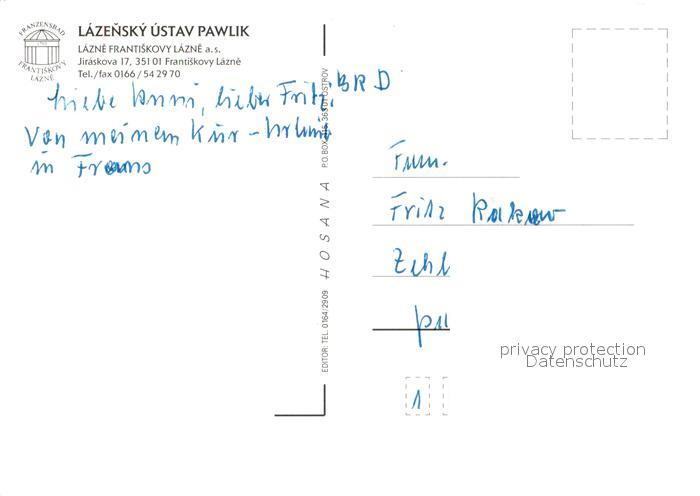 FRANZENSBAD
FRANTIŠKOVY
LÁZNĚ
LÁZEŇSKÝ ÚSTAV PAWLIK
LÁZNĚ FRANTIŠKOVY LÁZNĚ a.s.
Jiráskova 17, 351 01 Františkovy Lázně
Tel./fax 0166 / 54 29 70
BRD
Liebe Anni, lieber Fritz,
Von meinem Kur-
in
Fam.
Fritz
Zehl
EDITOR: TEL. 0164/2909 HOSANA P.O.BOX 363 01 OSTROV
privacy protection
Datenschutz
1